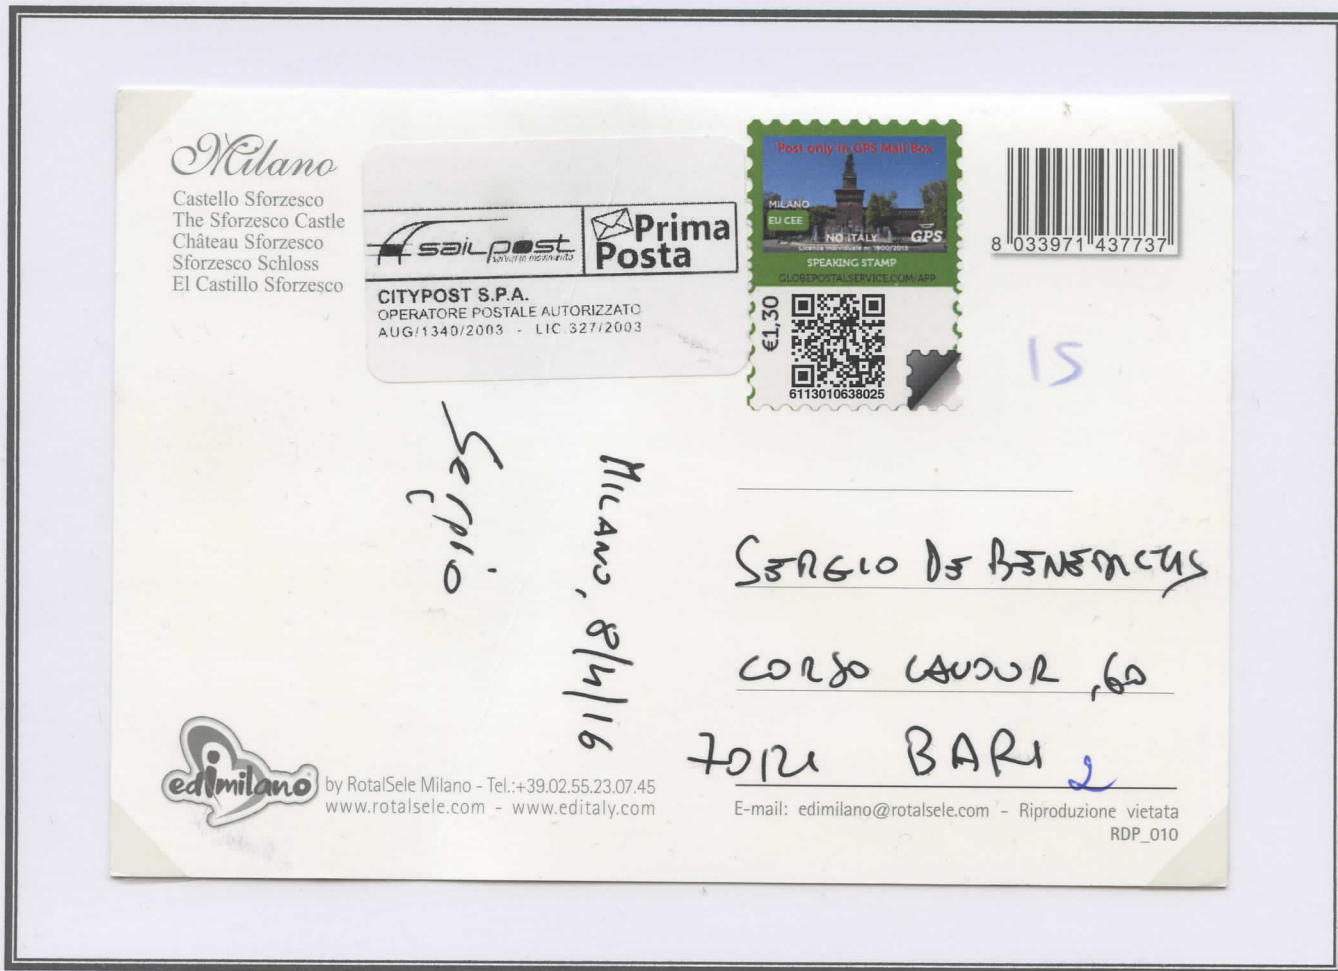 Milano
Castello Sforzesco
The Sforzesco Castle
Château Sforzesco
Sforzesco Schloss
El Castillo Sforzesco
sailpost
Prima
Posta
CITYPOST S.P.A.
OPERATORE POSTALE AUTORIZZATO
AUG/1340/2003 - LIC.327/2003
Post only in GPS Mail Box
MILANO
EU CEE
NO ITALY
GPS
Licenza Individuale nr. 1900/2013
SPEAKING STAMP
GLOBEPOSTALSERVICE.COM/APP
€1,30
6113010638025
8 033971 437737
15
MILANO, 8/4/16
Sergio
SERGIO DE BENEDICTIS
CORSO CAVOUR, 60
70121 BARI
2
edimilano
by RotalSele Milano - Tel.:+39.02.55.23.07.45
www.rotalsele.com - www.editaly.com
E-mail: edimilano@rotalsele.com - Riproduzione vietata
RDP_010